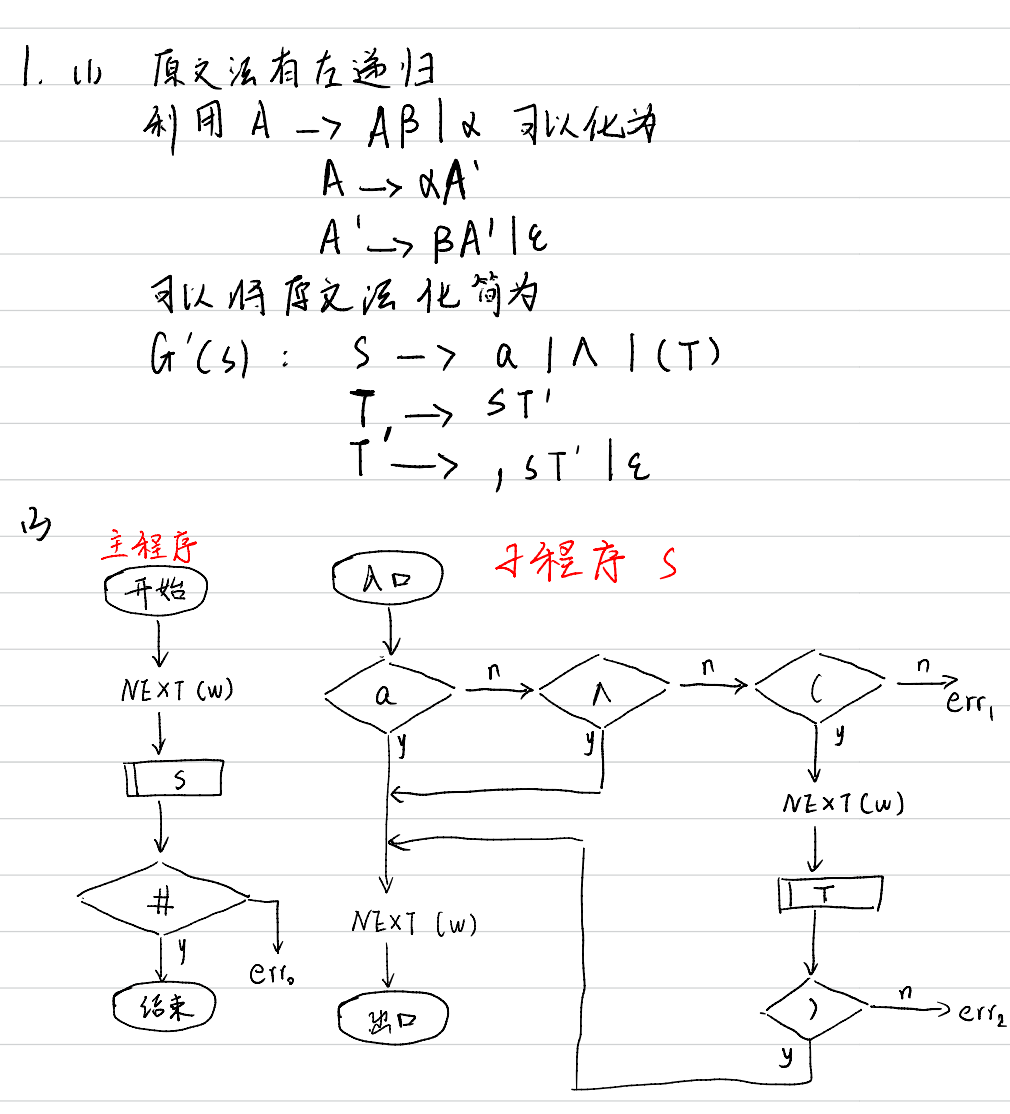 1. (1) 原文法有左递归
利用 A → Aβ | α 可以化为
A → αA'
A' → βA' | ε
可以将原文法化简为
G'(S) : S → a | Λ | (T)
T → ST'
T' → , ST' | ε
(2)
主程序
开始
NEXT(w)
S
#
y
err₀
结束
子程序 S
入口
a
n
Λ
n
(
n
err₁
y
y
y
NEXT(w)
T
NEXT(w)
)
n
err₂
y
出口